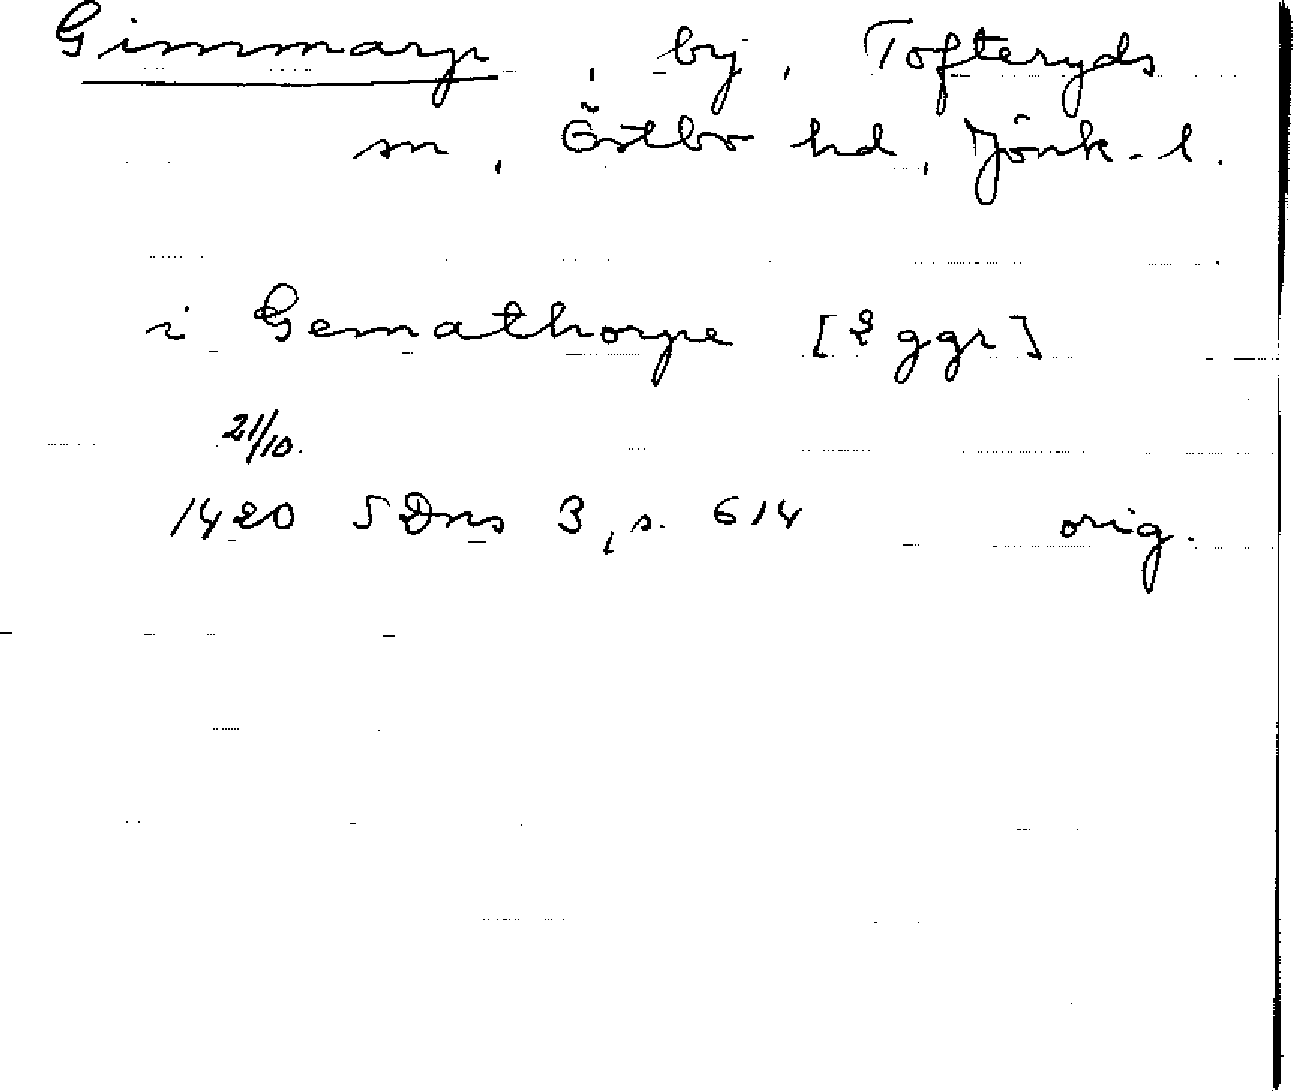 Gimmarp, by, Tofteryds
sn, Östbo hd, Jönk. l.
i Gemathorpe [2 ggr]
21/10.
1420 SDns 3, s. 614 orig.